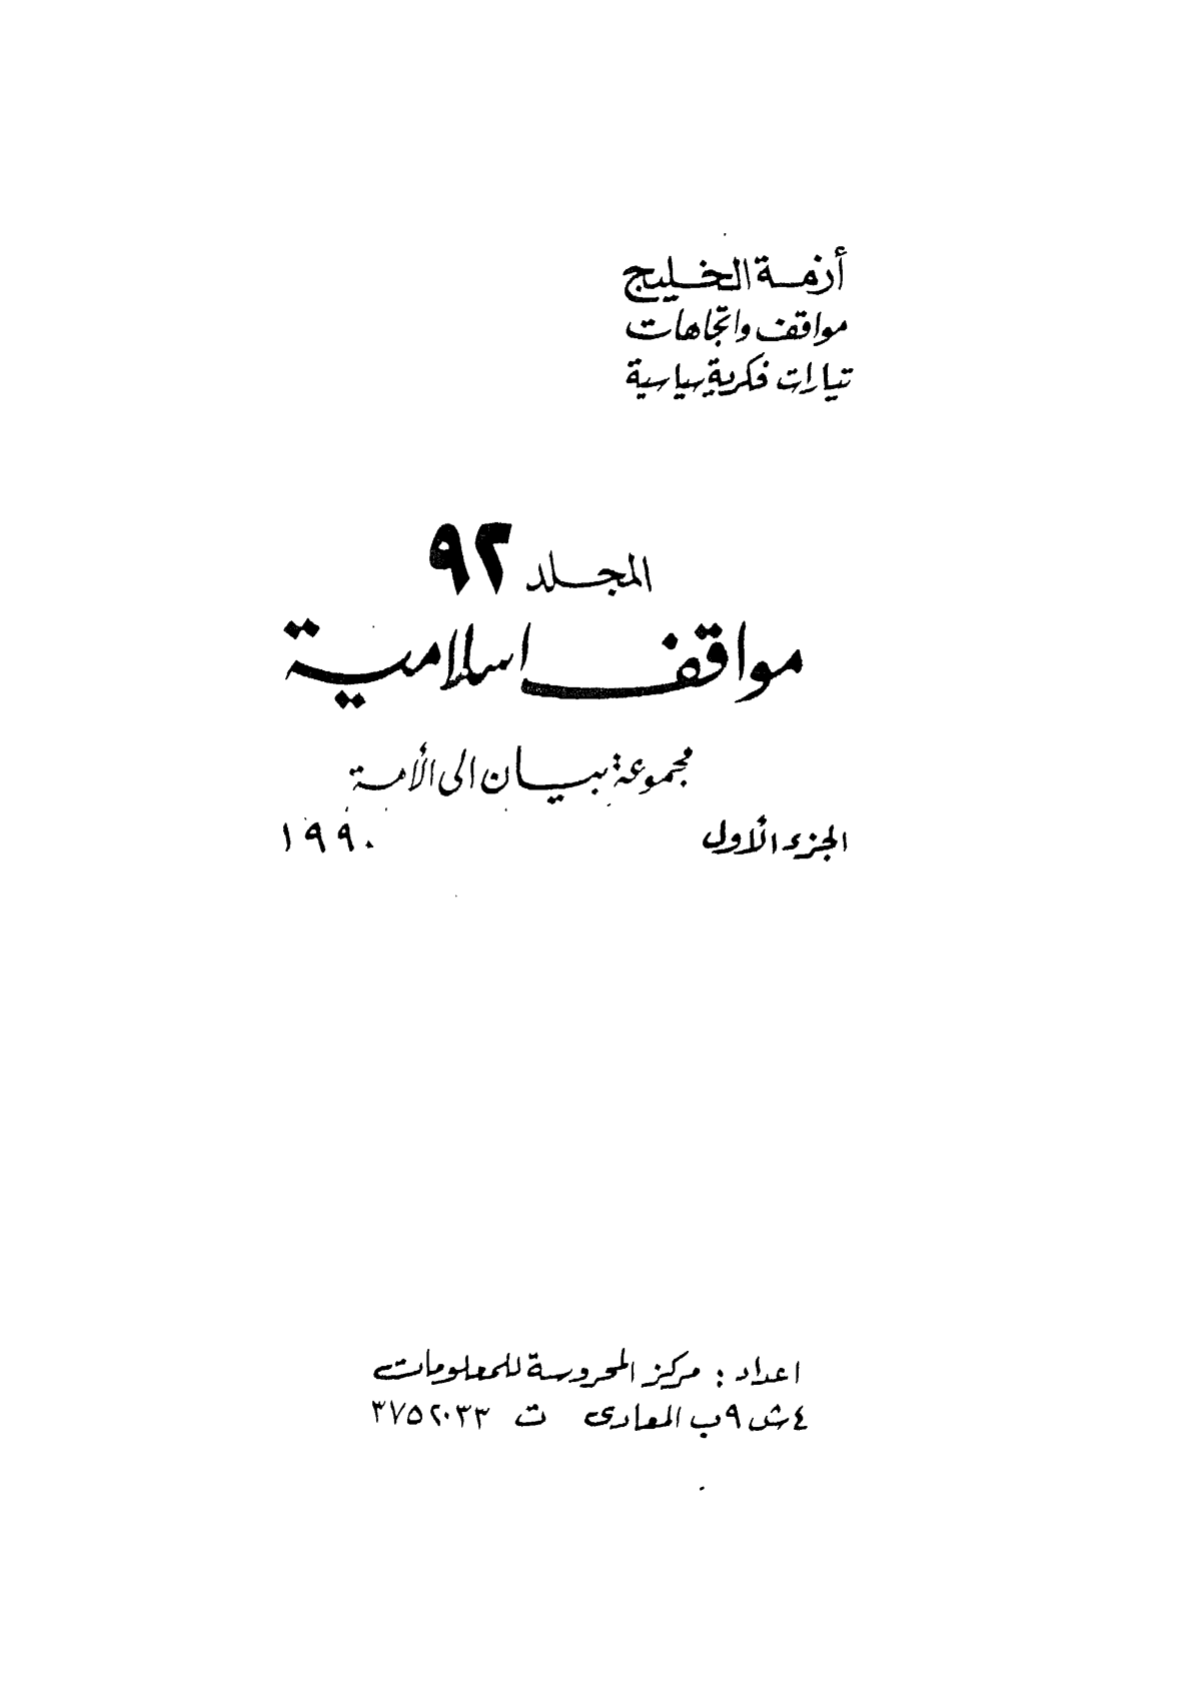 أزمة الخليج
مواقف واتجاهات
تيارات فكرية سياسية
المجلد ٩٢
مواقف اسلامية
مجموعة بيان الى الأمة
الجزء الأول ١٩٩٠
اعداد : مركز المحروسة للمعلومات
٤ ش ٩ب المعادى ت ٣٧٥٢٠٣٣